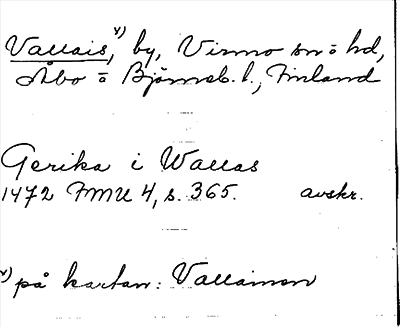 Vallais,ˣ⁾ by, Virmo sn o hd,
Åbo o Björneb. l., Finland
Gerika i Wallas
1472 FMU 4, s. 365. avskr.
ˣ⁾ på kartan: Vallainen